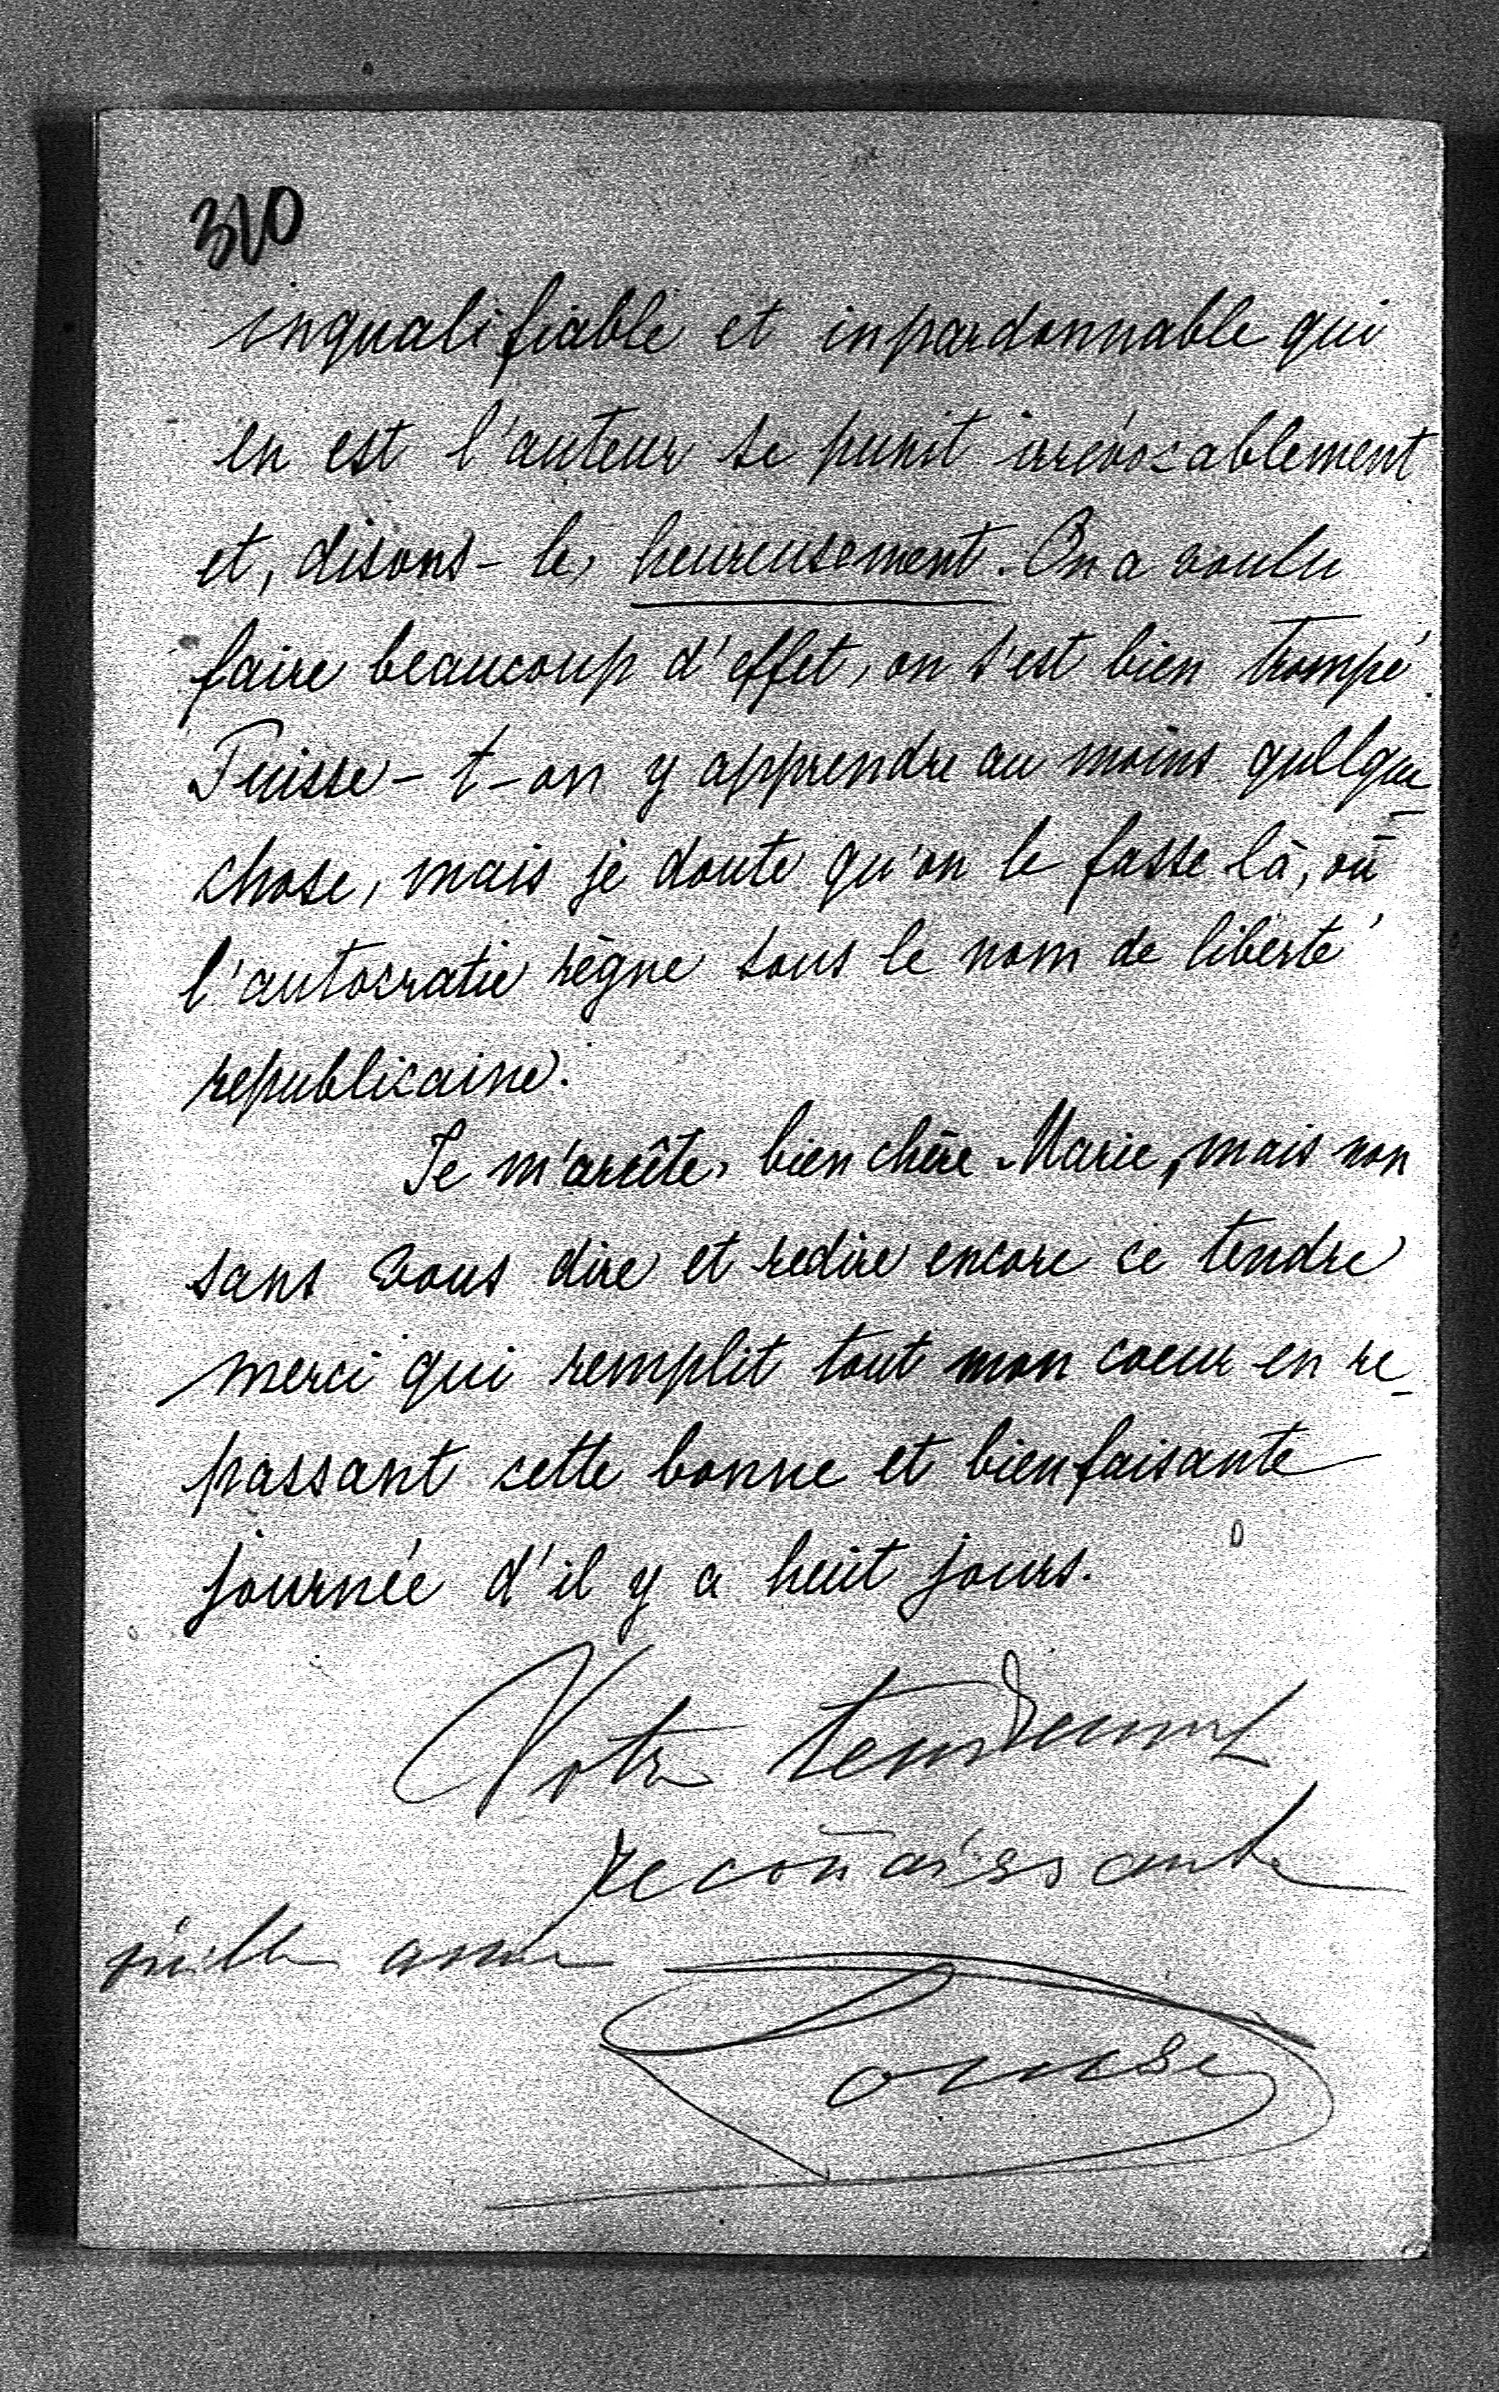 310
inqualifiable et inpardonnable qui
en est l'auteur se punit irrévocablement
et, disons-le, heureusement. On a voulu
faire beaucoup d'effet, on s'est bien trompé.
Puisse-t-on y apprendre au moins quelque
chose, mais je doute qu'on le fasse là, où
l'autocratie règne sous le nom de liberté
republicaine.
Je m'arrête, bien chère Marie, mais non
sans vous dire et redire encore ce tendre
merci qui remplit tout mon coeur en re-
passant cette bonne et bienfaisante
journée d'il y a huit jours.
Votre tendrement
reconaissante
vieille amie
Louise